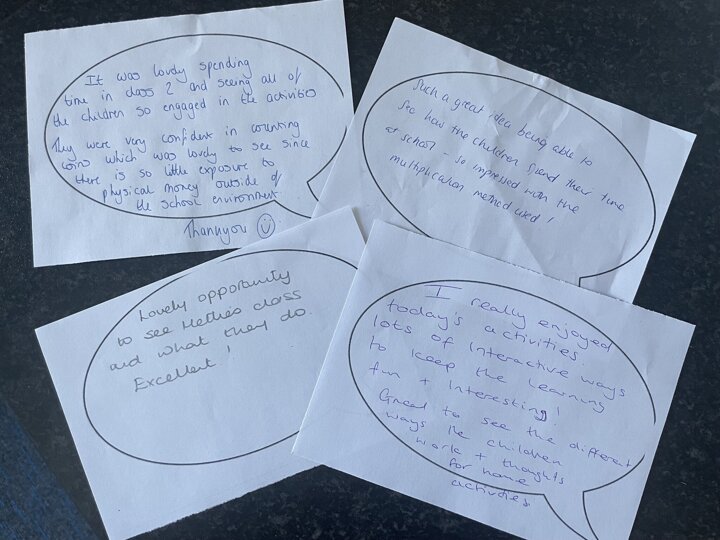 It was lovely spending
time in class 2 and seeing all of
the children so engaged in the activities
They were very confident in counting
coins which was lovely to see since
there is so little exposure to
physical money outside of
the school environment.
Thankyou
Such a great idea being able to
see how the children spend their time
at school. So impressed with the
multiplication method used!
Lovely opportunity
to see class
and what they do.
Excellent!
I really enjoyed
today's activities.
lots of interactive ways
to keep the learning
fun + interesting!
Great to see the different
ways the children
work + thoughts
for home
activities